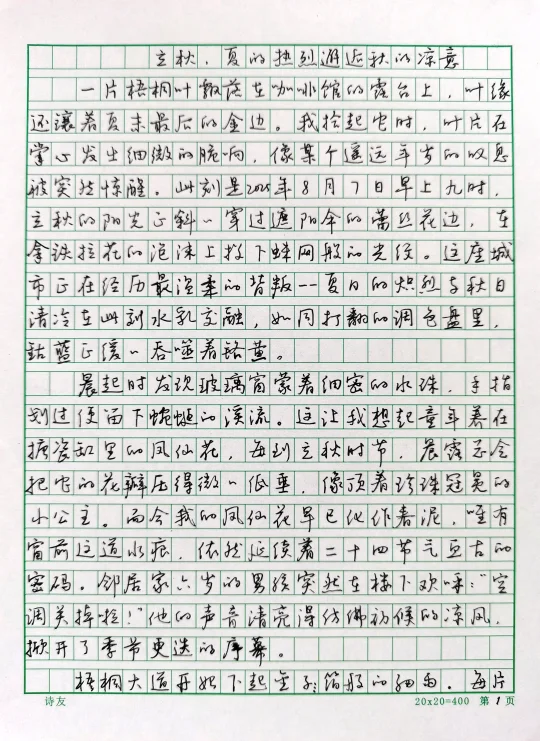 立秋，夏的热烈邂逅秋的凉意
一片梧桐叶飘落在咖啡馆的露台上，叶缘
还镶着夏末最后的金边。我拾起它时，叶片在
掌心发出细微的脆响，像某个遥远年岁的叹息
被突然惊醒。此刻是2025年8月7日早上九时，
立秋的阳光正斜斜穿过遮阳伞的蕾丝花边，在
拿铁拉花的泡沫上投下蛛网般的光纹。这座城
市正在经历最温柔的背叛--夏日的炽烈与秋日
清冷在此刻水乳交融，如同打翻的调色盘里，
钴蓝正缓缓吞噬着赭黄。
晨起时发现玻璃窗蒙着细密的水珠，手指
划过便留下蜿蜒的溪流。这让我想起童年养在
搪瓷缸里的凤仙花，每到立秋时节，晨露总会
把它的花瓣压得微微低垂，像顶着珍珠冠冕的
小公主。而今我的凤仙花早已化作春泥，唯有
窗前这道水痕，依然延续着二十四节气亘古的
密码。邻居家六岁的男孩突然在楼下欢呼："空
调关掉啦！"他的声音清亮得仿佛初候的凉风，
掀开了季节更迭的序幕。
梧桐大道开始下起金子箔般的细雨。每片
诗友
20x20=400 第1页